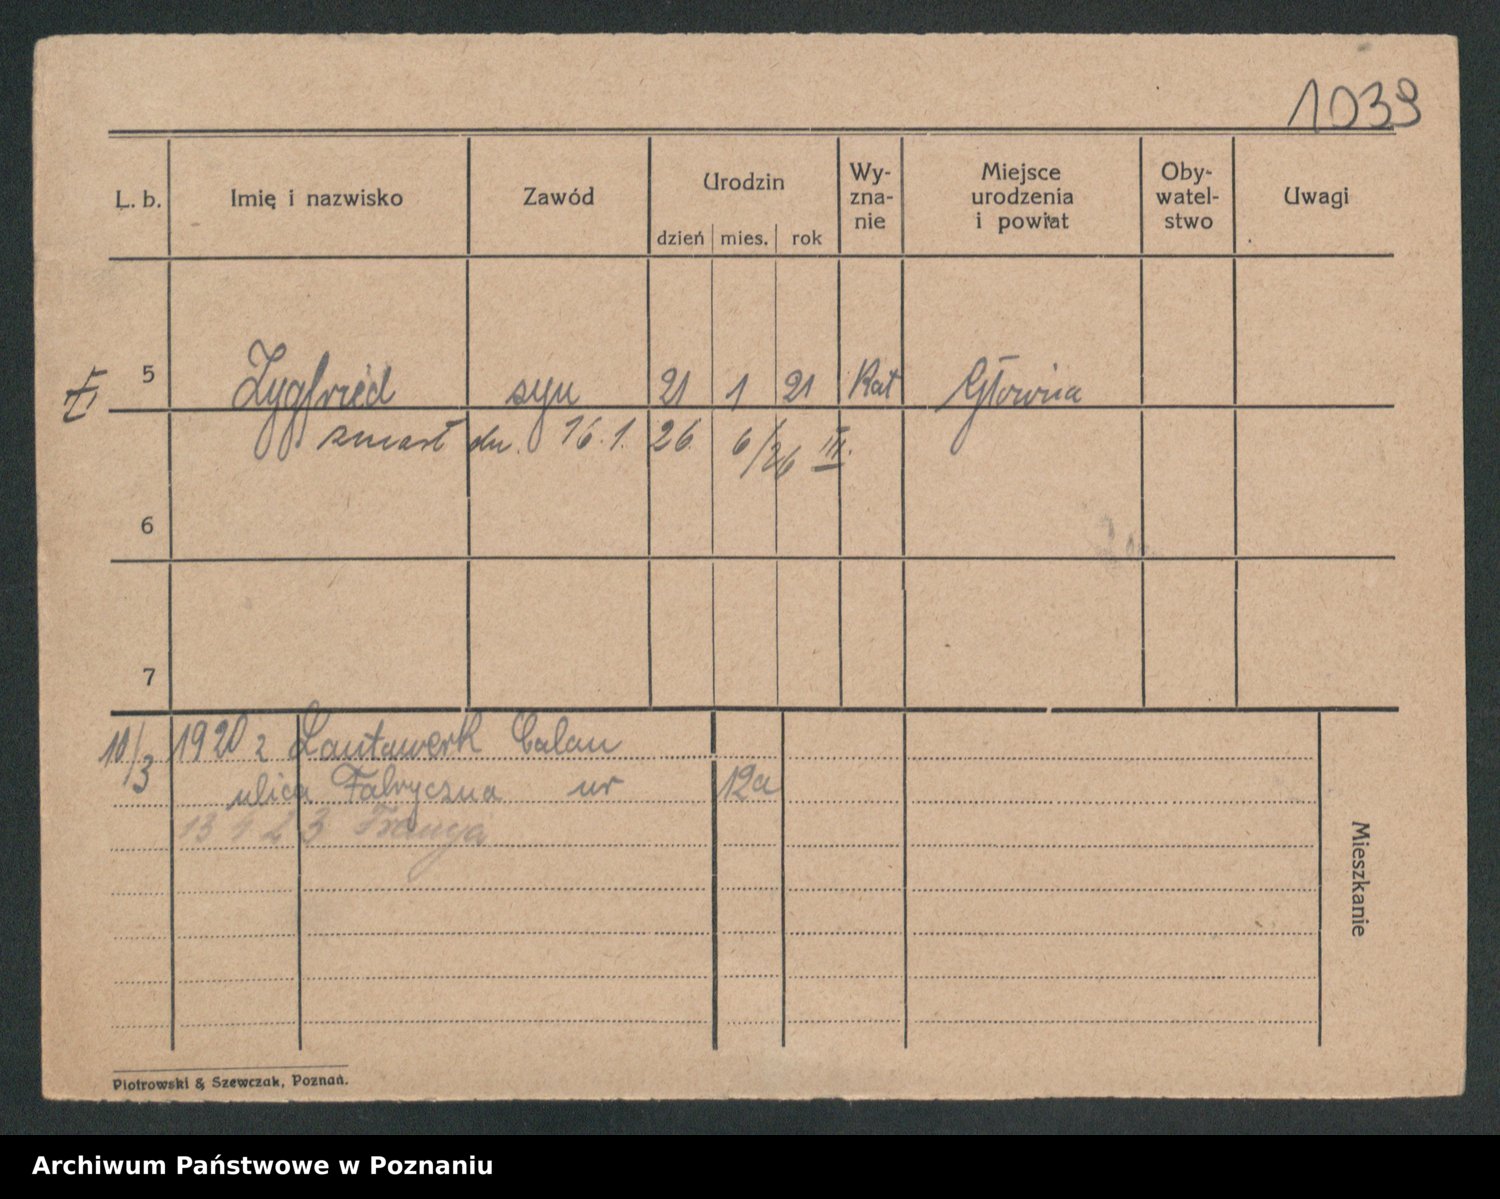 1039
L. b. Imię i nazwisko Zawód Urodzin Wy-
zna-
nie Miejsce
urodzenia
i powiat Oby-
watel-
stwo Uwagi
dzień mies. rok
5 Zygfried syn 21 1 21 Kat Główna
zmarł dn. 16.1. 26. 6/26 III.
6
7
10/3 1920 z Lautawerk Calau
ulica Fabryczna nr 12a
13 1 23 Francja
Mieszkanie
Piotrowski & Szewczak, Poznań.
Archiwum Państwowe w Poznaniu